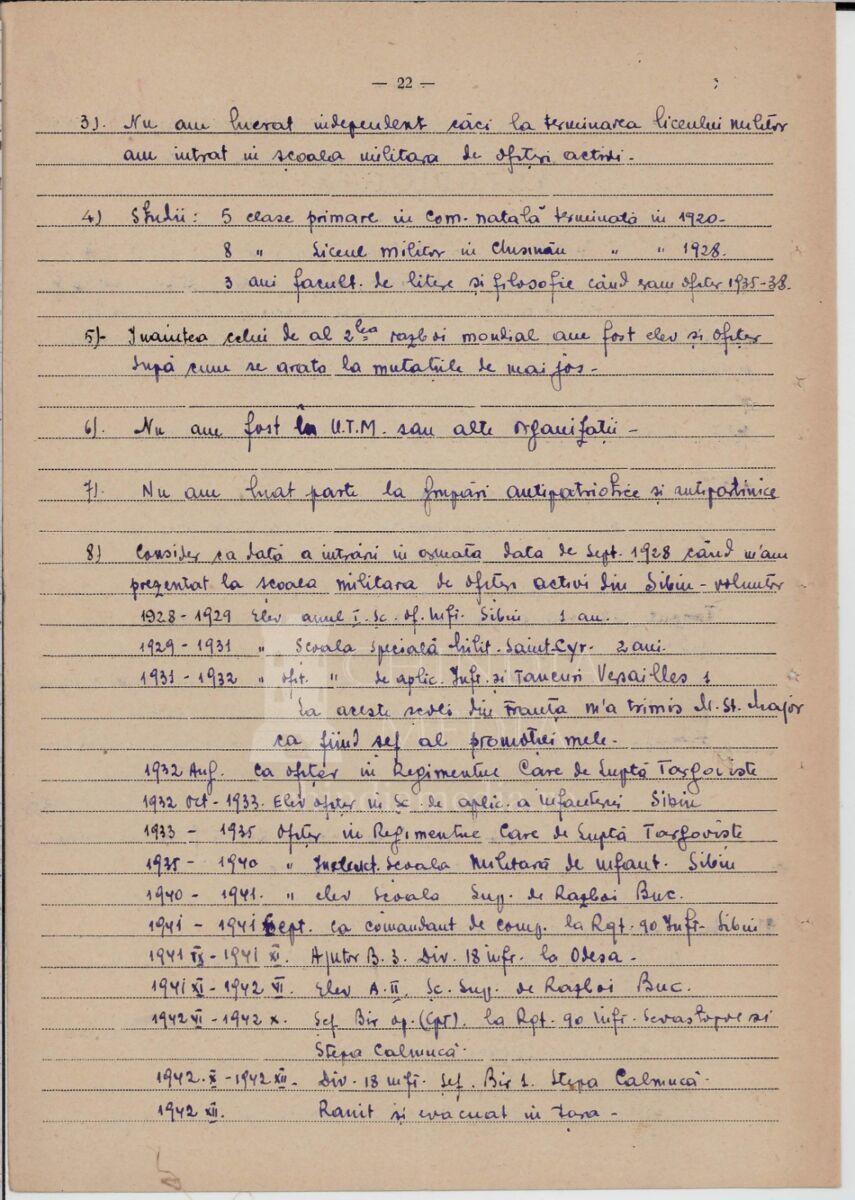 — 22 —
3). Nu am lucrat independent căci la terminarea liceului militar
am intrat in școala militara de ofițeri activi.
4) Studii: 5 clase primare in com. natală terminată in 1920-
8 „ Liceul militar in „ „ 1928.
3 ani facult. de litere și filosofie când eram ofițer 1935-38.
5)- Inaintea celui de al 2lea razboi mondial am fost elev și ofițer
după cum se arata la mutațiile de mai jos-
6). Nu am fost în U.T.M. sau alte organizații-
7). Nu am luat parte la grupări antipatriotice și antipartinice
8) Consider ca dată a intrării in armată data de Sept. 1928 când m'am
prezentat la școala militara de ofițeri activi din Sibiu - voluntar
1928-1929 Elev anul I. Sc. of. Inf. Sibiu 1 an.
1929-1931 „ Scoala Specială Milit. Saint-Cyr. 2 ani.
1931-1932 „ ofit. „ de aplic. Inf. și Tancuri Versailles 1
La aceste scoli din Franța m'a trimis M. St. Major
ca fiind sef al promoției mele.
1932 Aug. ca ofițer in Regimentul Care de Luptă Targoviste
1932 Oct-1933. Elev ofițer in Sc. de aplic. a Infanteriei Sibiu
1933 - 1935 Ofițer in Regimentul Care de Luptă Targoviste
1935- 1940 „ Instruct. Scoala Militară de infant. Sibiu
1940- 1941. „ elev Scoala Sup. de Razboi Buc.
1941 - 1941 Sept. ca comandant de comp. la Rgt. 90 Inf. Sibiu
1941 IX - 1941 XI. Ajutor B. 3. Div. 18 inf. la Odesa-
1941 XI - 1942 VI. Elev A. II. Sc. Sup. de Razboi Buc.
1942 VI - 1942 X. Șef Bir op. (Cpt). la Rgt. 90 Inf. Sevastopol si
Stepa Calmucă.
1942. X - 1942 XII. Div. 18 inf. Șef. Bir 1. Stepa Calmucă.
1942 XII. Ranit și evacuat in țara-